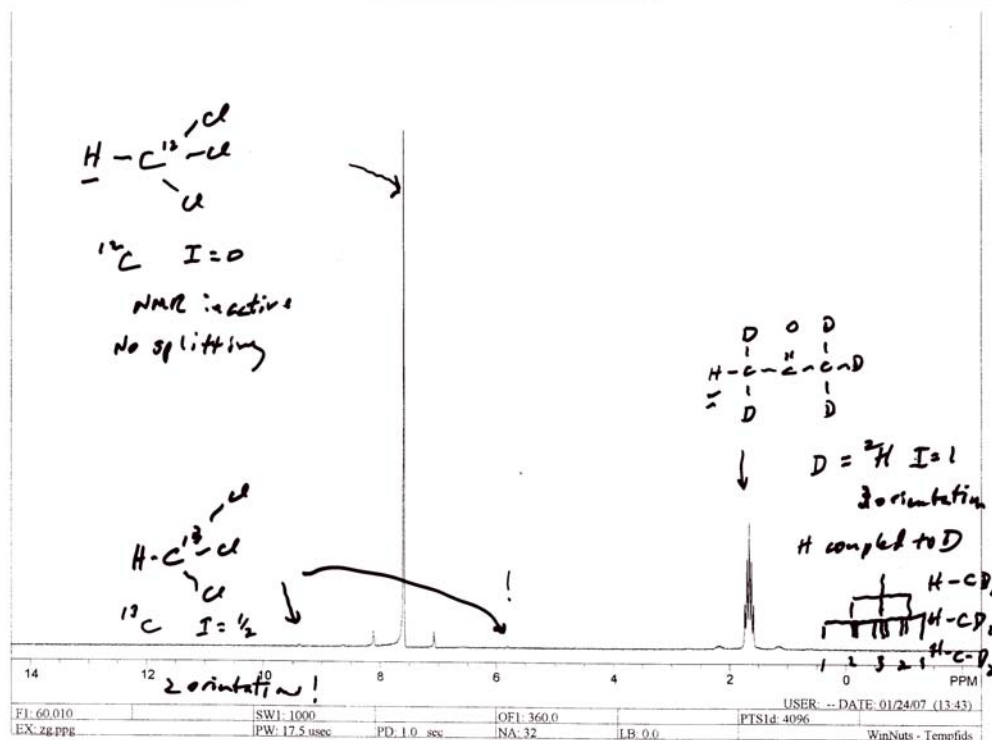 Cl
H - C¹² - Cl
Cl
¹²C I = 0
NMR inactive
No splitting
D O D
H - C - C - C - D
D D
D = ²H I = 1
3 orientation
H coupled to D
H - CD
H - CD
H - C - D₂
1 2 3 2 1
Cl
H - C¹³ - Cl
Cl
¹³C I = ½
!
14 12 10 8 6 4 2 0 PPM
2 orientation !
USER: -- DATE: 01/24/07 (13:43)
F1: 60.010 SW1: 1000 OF1: 360.0 PTS1d: 4096
EX: zg.ppg PW: 17.5 usec PD: 1.0 sec NA: 32 LB: 0.0 WinNuts - Tempfids